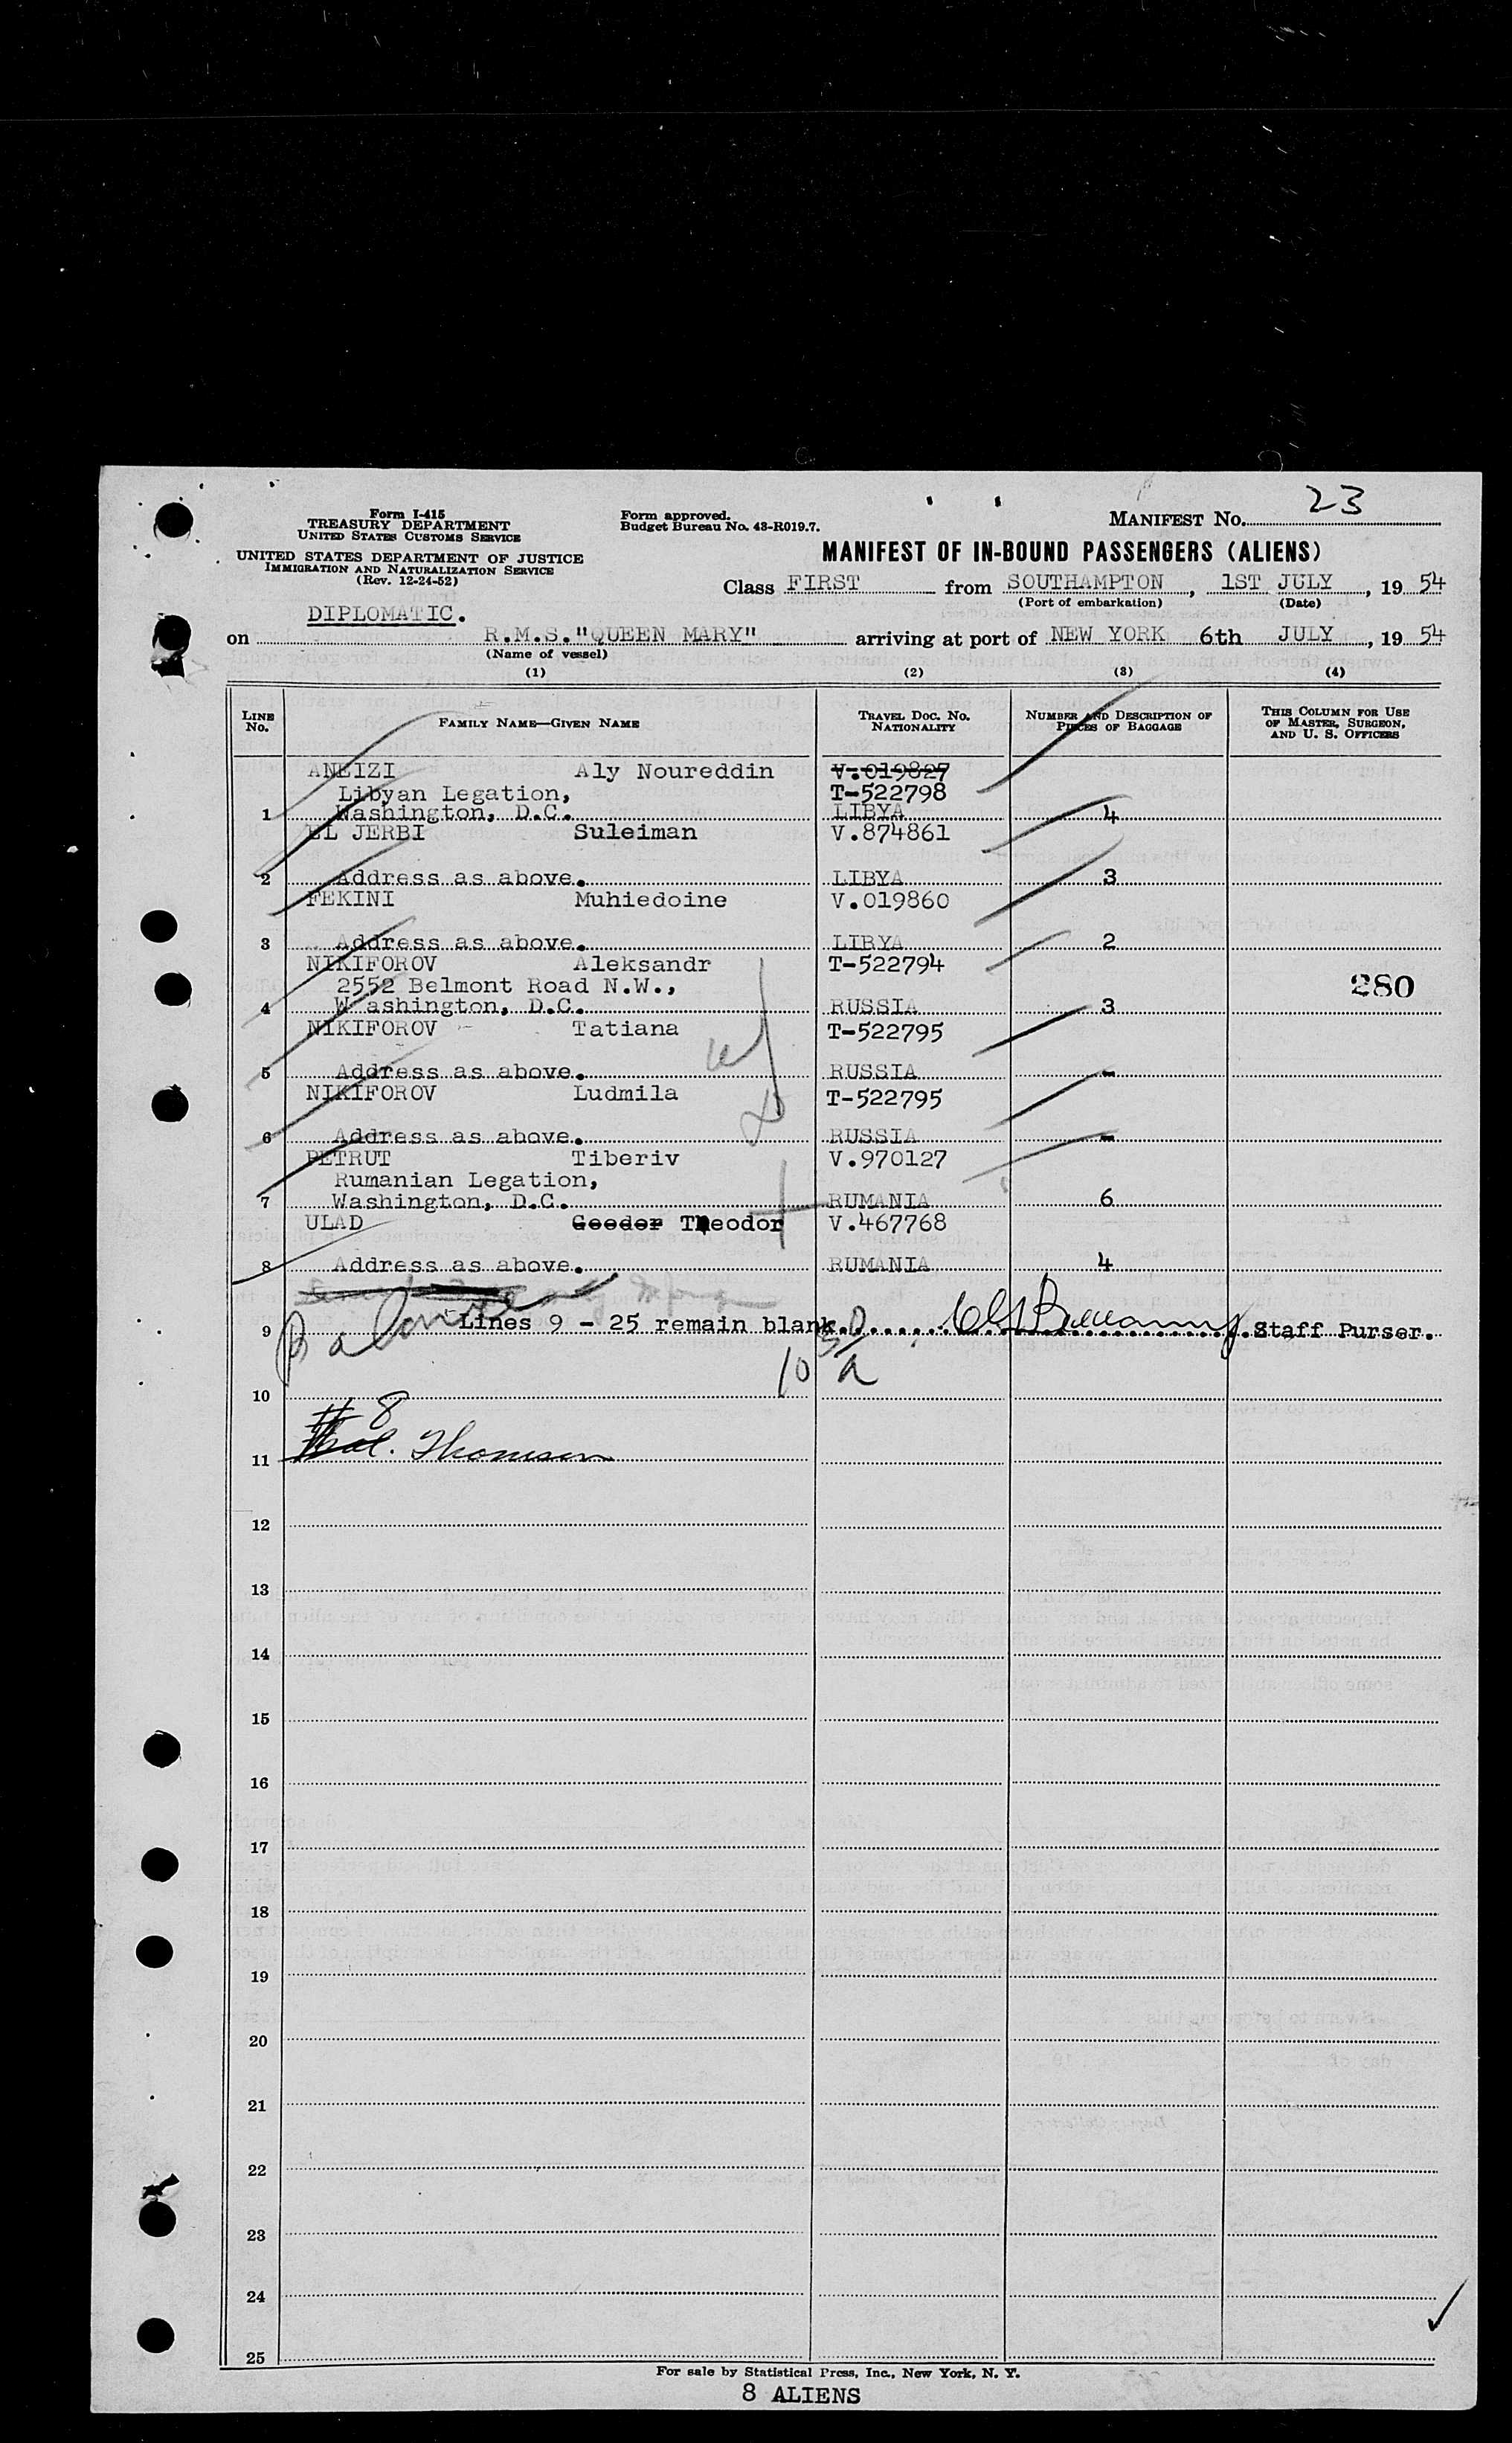 Form I-415
TREASURY DEPARTMENT
UNITED STATES CUSTOMS SERVICE
UNITED STATES DEPARTMENT OF JUSTICE
IMMIGRATION AND NATURALIZATION SERVICE
(Rev. 12-24-52)
Form approved.
Budget Bureau No. 43-R019.7.
MANIFEST No. 23
MANIFEST OF IN-BOUND PASSENGERS (ALIENS)
Class FIRST from SOUTHAMPTON, 1ST JULY, 19 54
(Port of embarkation) (Date)
DIPLOMATIC.
on R.M.S."QUEEN MARY" arriving at port of NEW YORK 6th JULY, 19 54
(Name of vessel)
(1) (2) (3) (4)
LINE No. FAMILY NAME—GIVEN NAME TRAVEL DOC. NO. NATIONALITY NUMBER AND DESCRIPTION OF PIECES OF BAGGAGE THIS COLUMN FOR USE OF MASTER, SURGEON, AND U. S. OFFICERS
ANEIZI Aly Noureddin V.019827
Libyan Legation, T-522798
1 Washington, D.C. LIBYA 4
EL JERBI Suleiman V.874861
2 Address as above. LIBYA 3
FEKINI Muhiedoine V.019860
3 Address as above. LIBYA 2
NIKIFOROV Aleksandr T-522794
2552 Belmont Road N.W., 280
4 Washington, D.C. RUSSIA 3
NIKIFOROV Tatiana T-522795
5 Address as above. RUSSIA -
NIKIFOROV Ludmila T-522795
6 Address as above. RUSSIA -
PETRUT Tiberiv V.970127
Rumanian Legation,
7 Washington, D.C. RUMANIA 6
ULAD Geeder Theodor V.467768
8 Address as above. RUMANIA 4
9 Lines 9 - 25 remain blank. Staff Purser.
10
# 8
11 Thomson
12
13
14
15
16
17
18
19
20
21
22
23
24
25
For sale by Statistical Press, Inc., New York, N. Y.
8 ALIENS